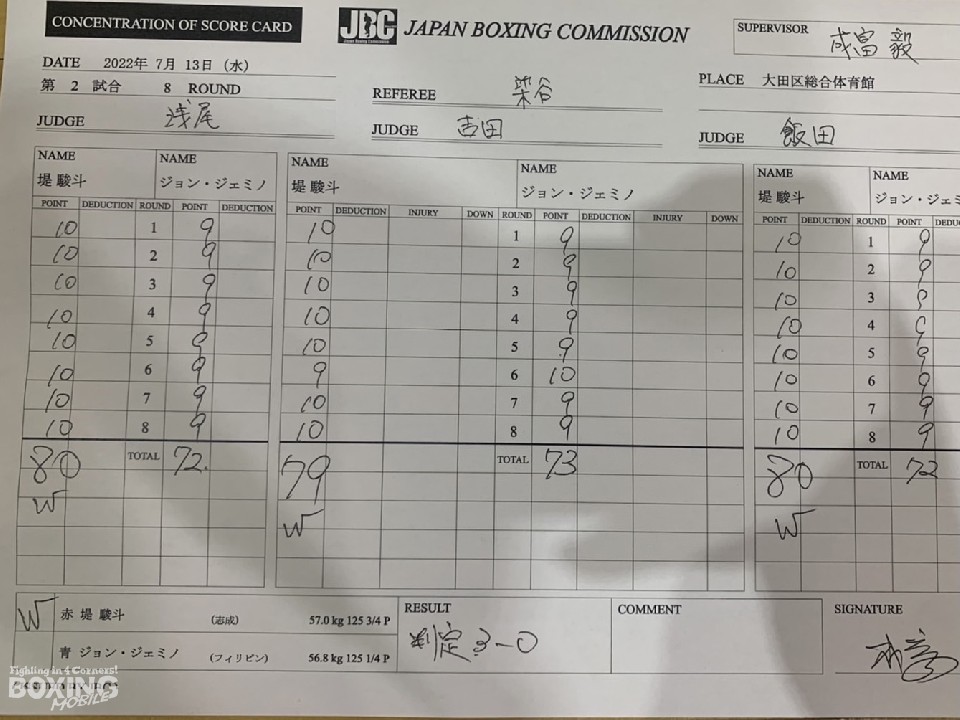 CONCENTRATION OF SCORE CARD
JBC JAPAN BOXING COMMISSION
SUPERVISOR 成富 毅
DATE 2022年 7月 13日 (水)
第 2 試合 8 ROUND
REFEREE 染谷
PLACE 大田区総合体育館
JUDGE 浅尾
JUDGE 吉田
JUDGE 飯田
NAME NAME NAME NAME NAME NAME
堤 駿斗 ジョン・ジェミノ 堤 駿斗 ジョン・ジェミノ 堤 駿斗 ジョン・ジェミ
POINT DEDUCTION ROUND POINT DEDUCTION POINT DEDUCTION INJURY DOWN ROUND POINT DEDUCTION INJURY DOWN POINT DEDUCTION ROUND POINT DEDU
10 1 9 10 1 9 10 1 9
10 2 9 10 2 9 10 2 9
10 3 9 10 3 9 10 3 9
10 4 9 10 4 9 10 4 9
10 5 9 10 5 9 10 5 9
10 6 9 9 6 10 10 6 9
10 7 9 10 7 9 10 7 9
10 8 9 10 8 9 10 8 9
80 TOTAL 72 79 TOTAL 73 80 TOTAL 72
W W W
W 赤 堤 駿斗 (志成) 57.0 kg 125 3/4 P
青 ジョン・ジェミノ (フィリピン) 56.8 kg 125 1/4 P
RESULT 判定 3-0
COMMENT
SIGNATURE
Fighting in 4 Corners!
BOXING
MOBILE